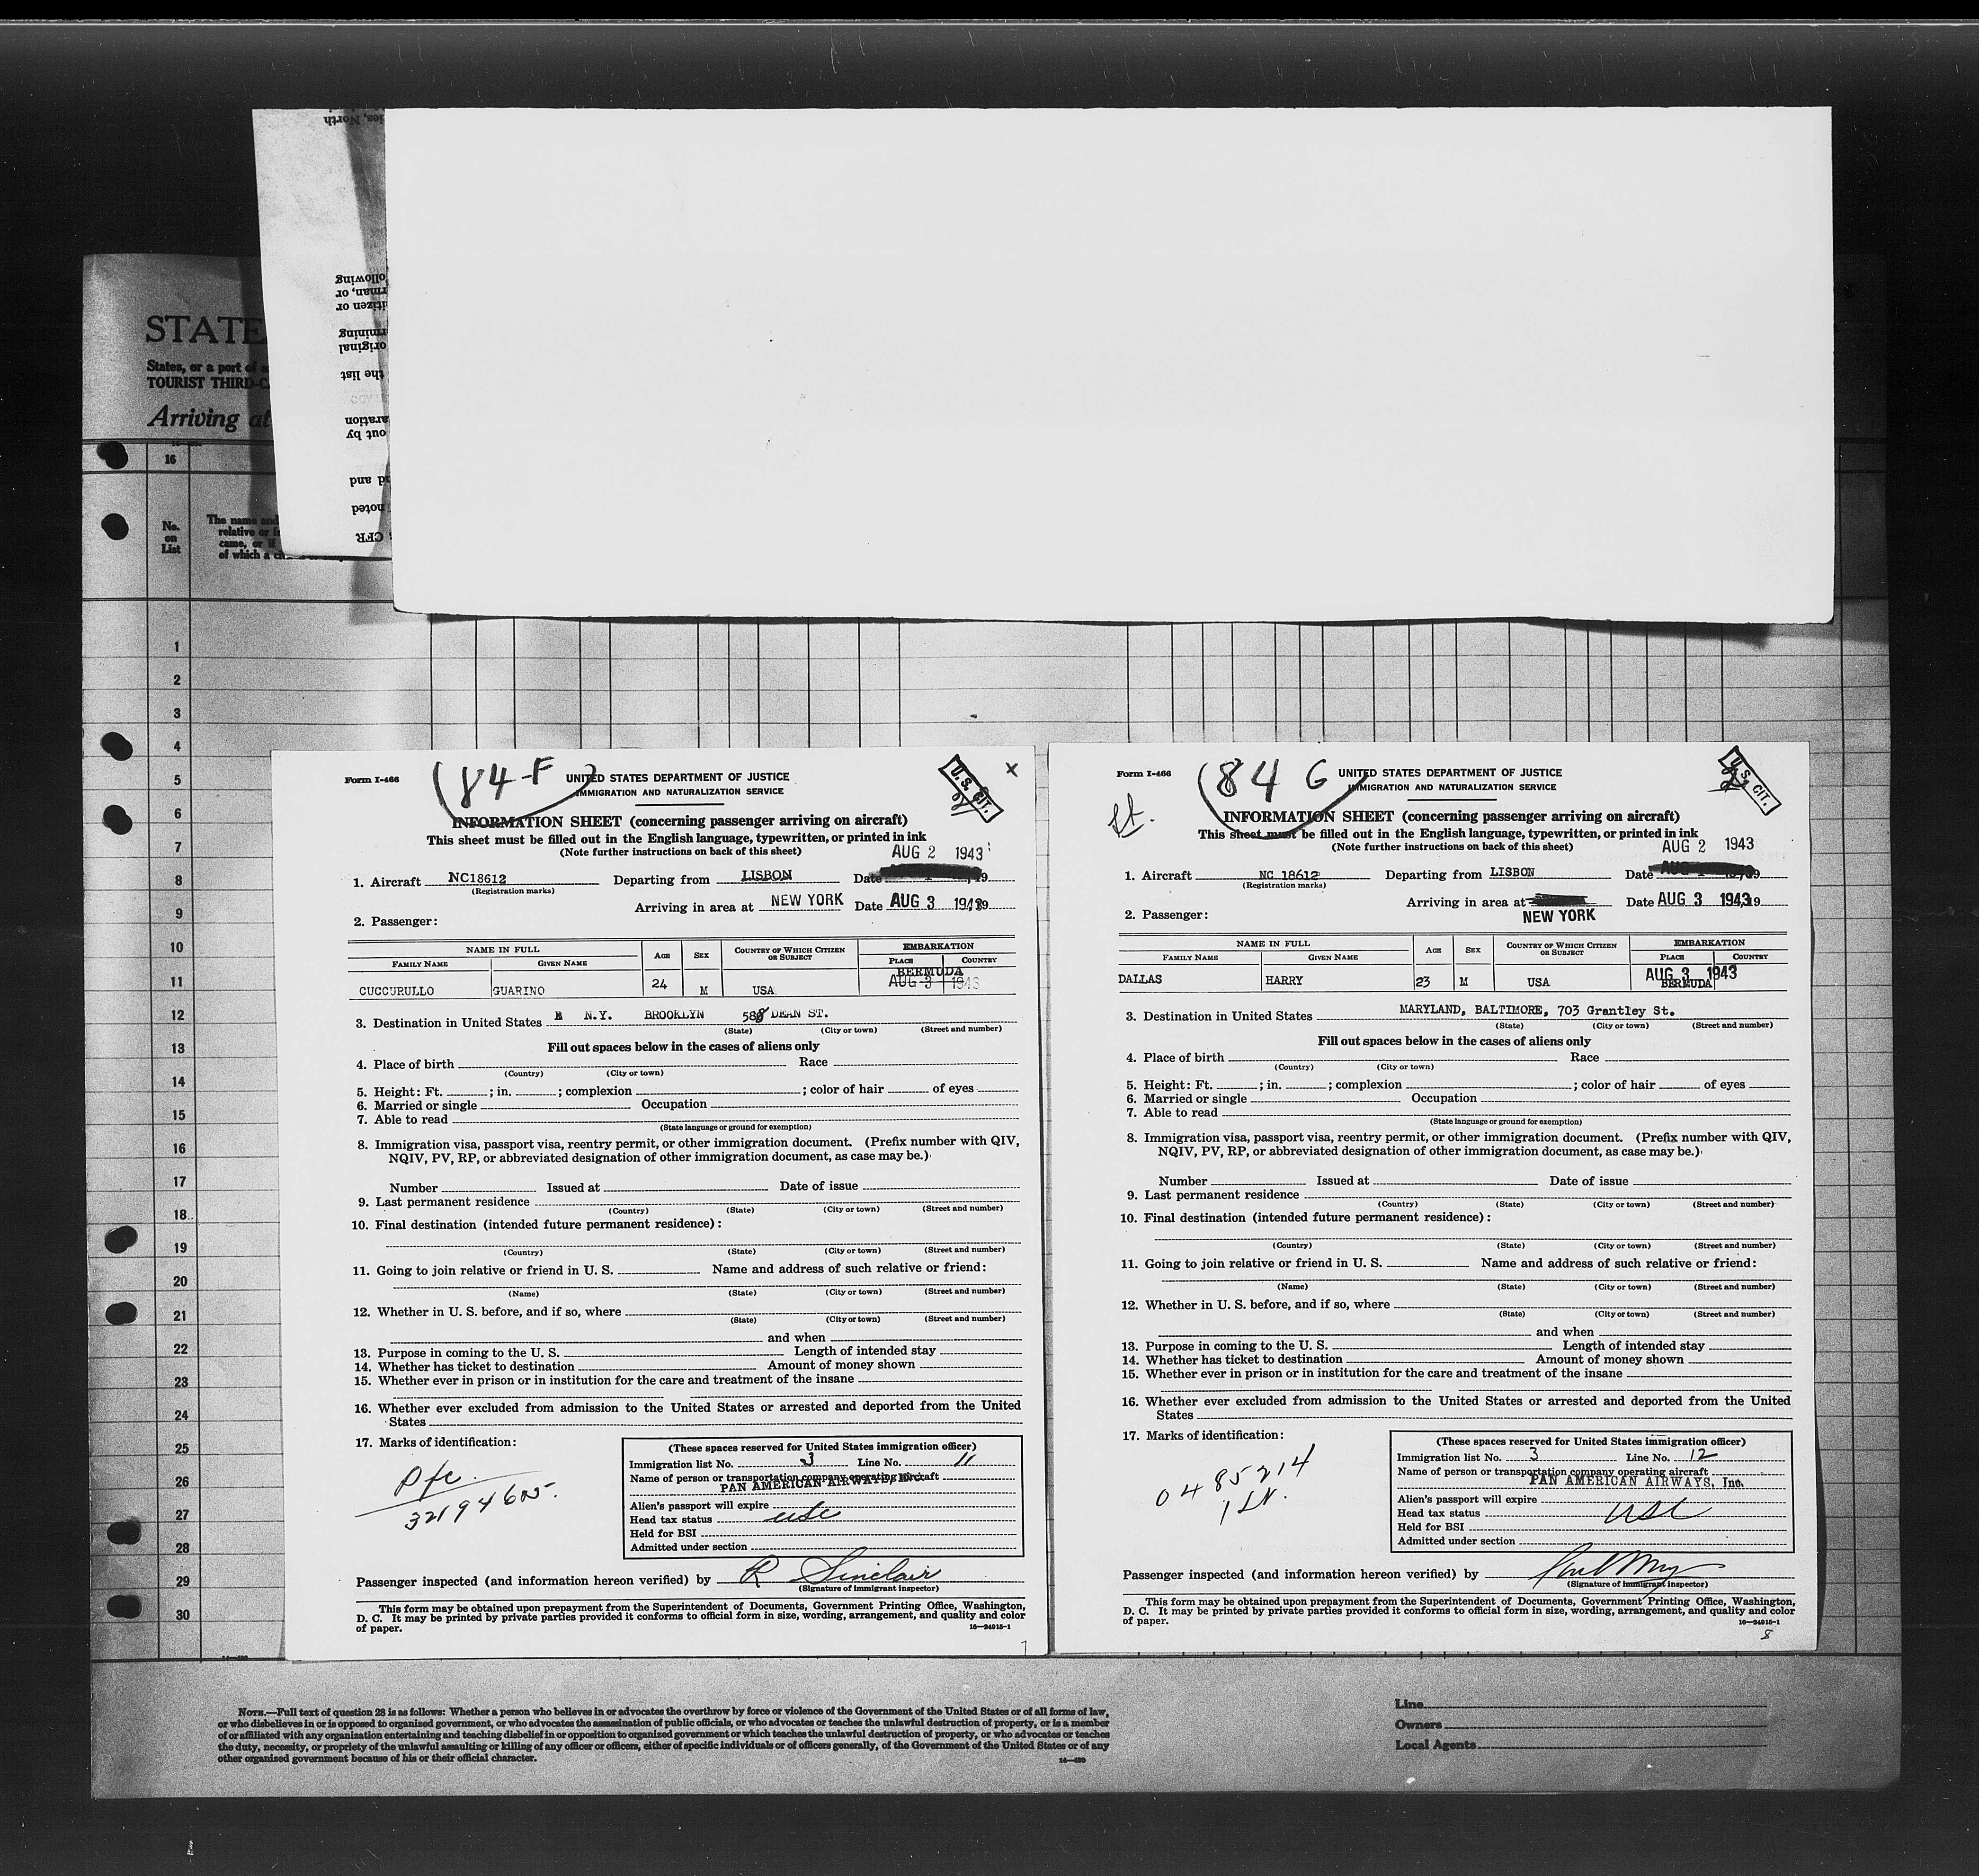 STATE
States, or a port of a
TOURIST THIRD-C
Arriving at
16
No.
on
List
The name and
relative or f
came, or if
of which a c
ies, North
following
rman, or
itizen or
rmining
original
the list
aration
out by
d and
noted
CFR
1
2
3
4
5
6
7
8
9
10
11
12
13
14
15
16
17
18
19
20
21
22
23
24
25
26
27
28
29
30
Form I-466
(84-F)
UNITED STATES DEPARTMENT OF JUSTICE
IMMIGRATION AND NATURALIZATION SERVICE
U.S. CIT.
X
INFORMATION SHEET (concerning passenger arriving on aircraft)
This sheet must be filled out in the English language, typewritten, or printed in ink
(Note further instructions on back of this sheet)
AUG 2 1943
1. Aircraft NC18612 Departing from LISBON Date , 19
(Registration marks)
Arriving in area at NEW YORK Date AUG 3 1943, 19
2. Passenger:
NAME IN FULL AGE SEX COUNTRY OF WHICH CITIZEN OR SUBJECT EMBARKATION
FAMILY NAME GIVEN NAME PLACE COUNTRY
BERMUDA
AUG 3 1943
CUCCURULLO GUARINO 24 M USA
3. Destination in United States N.Y. BROOKLYN 588 DEAN ST.
(State) (City or town) (Street and number)
Fill out spaces below in the cases of aliens only
4. Place of birth Race
(Country) (City or town)
5. Height: Ft. ; in. ; complexion ; color of hair of eyes
6. Married or single Occupation
7. Able to read
(State language or ground for exemption)
8. Immigration visa, passport visa, reentry permit, or other immigration document. (Prefix number with QIV,
NQIV, PV, RP, or abbreviated designation of other immigration document, as case may be.)
Number Issued at Date of issue
9. Last permanent residence
(Country) (State) (City or town) (Street and number)
10. Final destination (intended future permanent residence):
(Country) (State) (City or town) (Street and number)
11. Going to join relative or friend in U. S. Name and address of such relative or friend:
(Name) (State) (City or town) (Street and number)
12. Whether in U. S. before, and if so, where
(State) (City or town) (Street and number)
and when
13. Purpose in coming to the U. S. Length of intended stay
14. Whether has ticket to destination Amount of money shown
15. Whether ever in prison or in institution for the care and treatment of the insane
16. Whether ever excluded from admission to the United States or arrested and deported from the United
States
17. Marks of identification:
Pfc.
32194605.
(These spaces reserved for United States immigration officer)
Immigration list No. 3 Line No. 11
Name of person or transportation company operating aircraft
PAN AMERICAN AIRWAYS, INC.
Alien's passport will expire
Head tax status usc
Held for BSI
Admitted under section
Passenger inspected (and information hereon verified) by R Sinclair
(Signature of immigrant inspector)
This form may be obtained upon prepayment from the Superintendent of Documents, Government Printing Office, Washington,
D. C. It may be printed by private parties provided it conforms to official form in size, wording, arrangement, and quality and color
of paper. 16—24915-1
7
Form I-466
(84 G
UNITED STATES DEPARTMENT OF JUSTICE
IMMIGRATION AND NATURALIZATION SERVICE
U.S. CIT.
INFORMATION SHEET (concerning passenger arriving on aircraft)
This sheet must be filled out in the English language, typewritten, or printed in ink
(Note further instructions on back of this sheet)
AUG 2 1943
1. Aircraft NC 18612 Departing from LISBON Date , 19
(Registration marks)
Arriving in area at Date AUG 3 1943, 19
NEW YORK
2. Passenger:
NAME IN FULL AGE SEX COUNTRY OF WHICH CITIZEN OR SUBJECT EMBARKATION
FAMILY NAME GIVEN NAME PLACE COUNTRY
AUG 3 1943
BERMUDA
DALLAS HARRY 23 M USA
3. Destination in United States MARYLAND, BALTIMORE, 703 Grantley St.
(State) (City or town) (Street and number)
Fill out spaces below in the cases of aliens only
4. Place of birth Race
(Country) (City or town)
5. Height: Ft. ; in. ; complexion ; color of hair of eyes
6. Married or single Occupation
7. Able to read
(State language or ground for exemption)
8. Immigration visa, passport visa, reentry permit, or other immigration document. (Prefix number with QIV,
NQIV, PV, RP, or abbreviated designation of other immigration document, as case may be.)
Number Issued at Date of issue
9. Last permanent residence
(Country) (State) (City or town) (Street and number)
10. Final destination (intended future permanent residence):
(Country) (State) (City or town) (Street and number)
11. Going to join relative or friend in U. S. Name and address of such relative or friend:
(Name) (State) (City or town) (Street and number)
12. Whether in U. S. before, and if so, where
(State) (City or town) (Street and number)
and when
13. Purpose in coming to the U. S. Length of intended stay
14. Whether has ticket to destination Amount of money shown
15. Whether ever in prison or in institution for the care and treatment of the insane
16. Whether ever excluded from admission to the United States or arrested and deported from the United
States
17. Marks of identification:
0485214
(These spaces reserved for United States immigration officer)
Immigration list No. 3 Line No. 12
Name of person or transportation company operating aircraft
PAN AMERICAN AIRWAYS, Inc.
Alien's passport will expire
Head tax status USC
Held for BSI
Admitted under section
Passenger inspected (and information hereon verified) by
(Signature of immigrant inspector)
This form may be obtained upon prepayment from the Superintendent of Documents, Government Printing Office, Washington,
D. C. It may be printed by private parties provided it conforms to official form in size, wording, arrangement, and quality and color
of paper. 16—24915-1
8
NOTE.—Full text of question 28 is as follows: Whether a person who believes in or advocates the overthrow by force or violence of the Government of the United States or of all forms of law,
or who disbelieves in or is opposed to organized government, or who advocates the assassination of public officials, or who advocates or teaches the unlawful destruction of property, or is a member
of or affiliated with any organization entertaining and teaching disbelief in or opposition to organized government or which teaches the unlawful destruction of property, or who advocates or teaches
the duty, necessity, or propriety of the unlawful assaulting or killing of any officer or officers, either of specific individuals or of officers generally, of the Government of the United States or of any
other organized government because of his or their official character.
Line
Owners
Local Agents